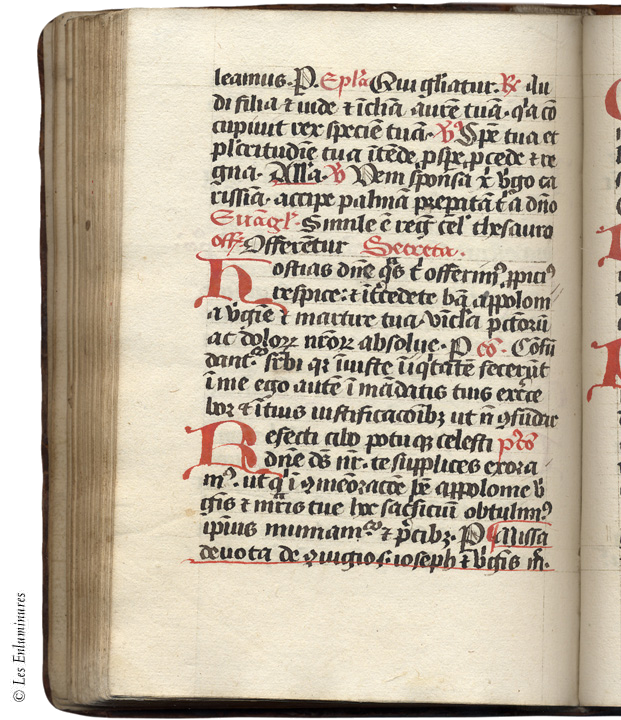 leamus. P. Ep̄la Qui gl̄iatur. R̸ Au
di filia et uide et īclīa aurē tuā. q̄a cō
cupiuit rex speciē tuā. V̸ Spē tua et
pl̄critudīe tua ītēde, pspe, pcede et re
gna. All̄a. V̸ Veni sponsa x̄ v̄go ca
rissīa. accipe palmā prepatā t̄ a dn̄o
Euāgl̄. Simile ē regn̄ cel̄ thesauro
off̄ Offerētur Secreta.
Hostias dn̄e q̄s t̄ offerim9 ppici9
respice: et īt̄cedēte bā appolom
a v̄gīe et martire tua vīcl̄a pctōrū
ac dolorꝝ nr̄orꝝ absolue. P cō. Cōfū
dant̄ sr̄bi qꝛ īiuste īiq̄tātē fecerūt
ī me ego autē ī mādatis tuis exerce
bor et ī tuis iustificacōibꝫ ut nō ꝯfūdar
Refecti cibo potuqꝫ celesti p̄cō
dn̄e ds̄ nr̄. te supplices exora
m9. ut q̄ ī ꝯmeōracōe bē appolome v̄
gīs et mr̄is tue hec sacͥficiū obtulim9
ipsius muniam̄ et p̄cibꝫ. P Missa
deuota de ꝯiugio s. ioseph et v̄gīs m̄.
© Les Enluminures